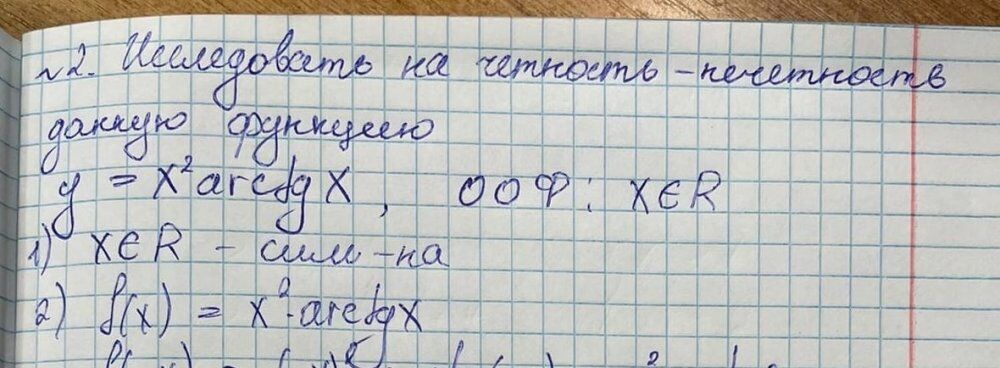 №2. Исследовать на четность-нечетность
данную функцию
y = x² arctg x, ООФ: x∈R
1) x∈R - сим-на
2) f(x) = x²·arctg x